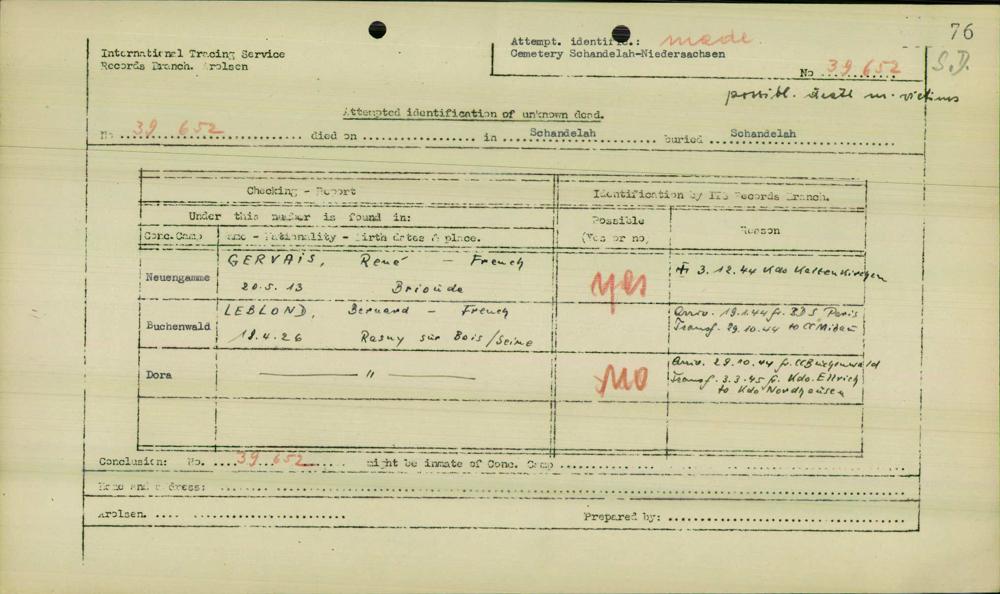 76
International Tracing Service
Records Branch. Arolsen
Attempt. identific.: made
Cemetery Schandelah-Niedersachsen
No 39 652
S.D.
possibl. death m. victims
Attempted identification of unknown dead.
No 39 652 died on .......... in Schandelah buried Schandelah
Checking - Report
Identification by ITS Records Branch.
Under this number is found in:
Possible
(Yes or no)
Reason
Conc.Camp
Name - Nationality - Birth dates & place.
Neuengamme
GERVAIS, René - French
20.5.13 Brioude
yes
+ 3.12.44 Kdo Kaltenkirchen
Buchenwald
LEBLOND, Bernard - French
19.4.26 Rosny sur Bois/Seine
Arriv. 19.1.44 fr. BDS Paris
Transf. 29.10.44 to CC Mibau
Dora
"
No
Arriv. 29.10.44 fr. CC Buchenwald
Transf. 3.3.45 fr. Kdo. Ellrich
to Kdo Nordhausen
Conclusion: No. 39 652 might be inmate of Conc. Camp
Name and address:
Arolsen.
Prepared by: